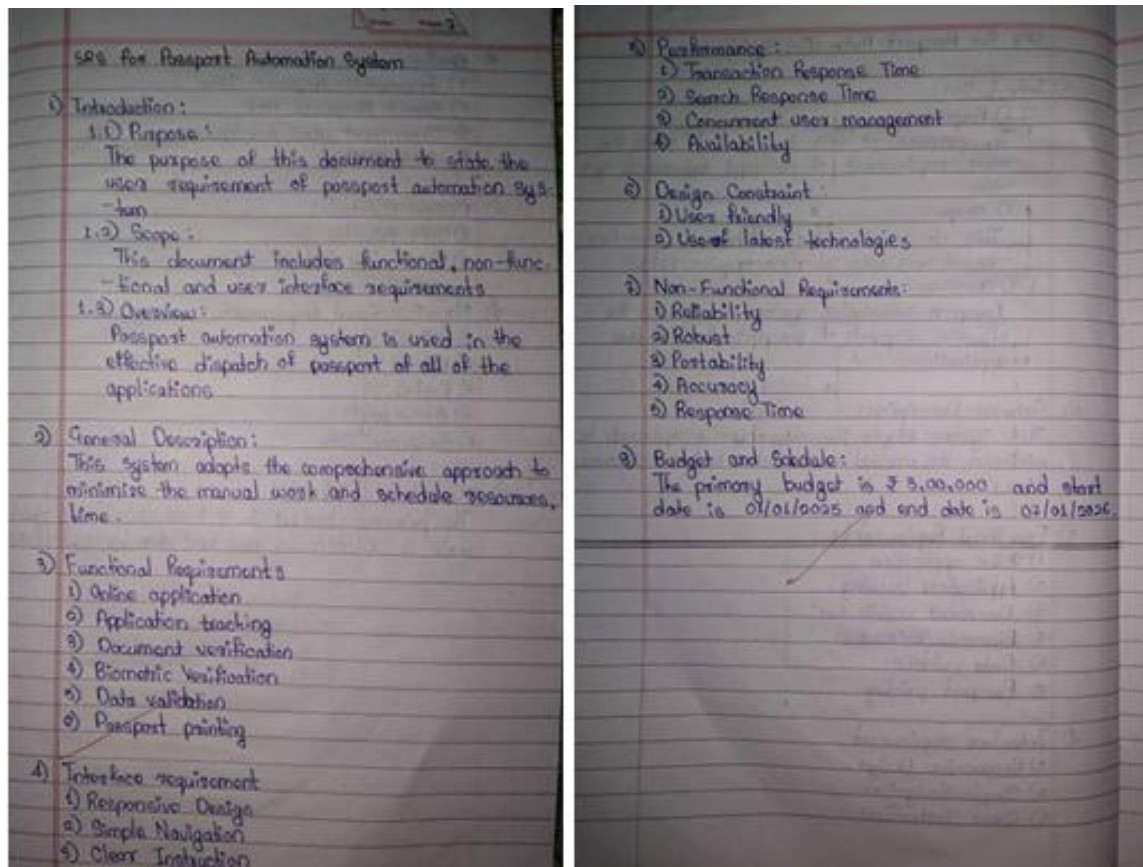 SRS for Passport Automation System
1) Introduction:
1.1) Purpose:
The purpose of this document to state the
user requirement of passport automation sys-
-tem
1.2) Scope:
This document includes functional, non-func
-tional and user interface requirements
1.3) Overview:
Passport automation system is used in the
effective dispatch of passport of all of the
applications
2) General Description:
This system adopts the comprehensive approach to
minimize the manual work and schedule resources,
time.
3) Functional Requirements
1) Online application
2) Application tracking
3) Document verification
4) Biometric Verification
5) Data validation
6) Passport printing
4) Interface requirement
1) Responsive Design
2) Simple Navigation
3) Clear Instruction
5) Performance:
1) Transaction Response Time
2) Search Response Time
3) Concurrent user management
4) Availability
6) Design Constraint:
1) User friendly
2) Use of latest technologies
7) Non-Functional Requirements:
1) Reliability
2) Robust
3) Portability
4) Accuracy
5) Response Time
8) Budget and Schedule:
The primary budget is ₹ 5,00,000 and start
date is 07/01/2025 and end date is 07/01/2026.